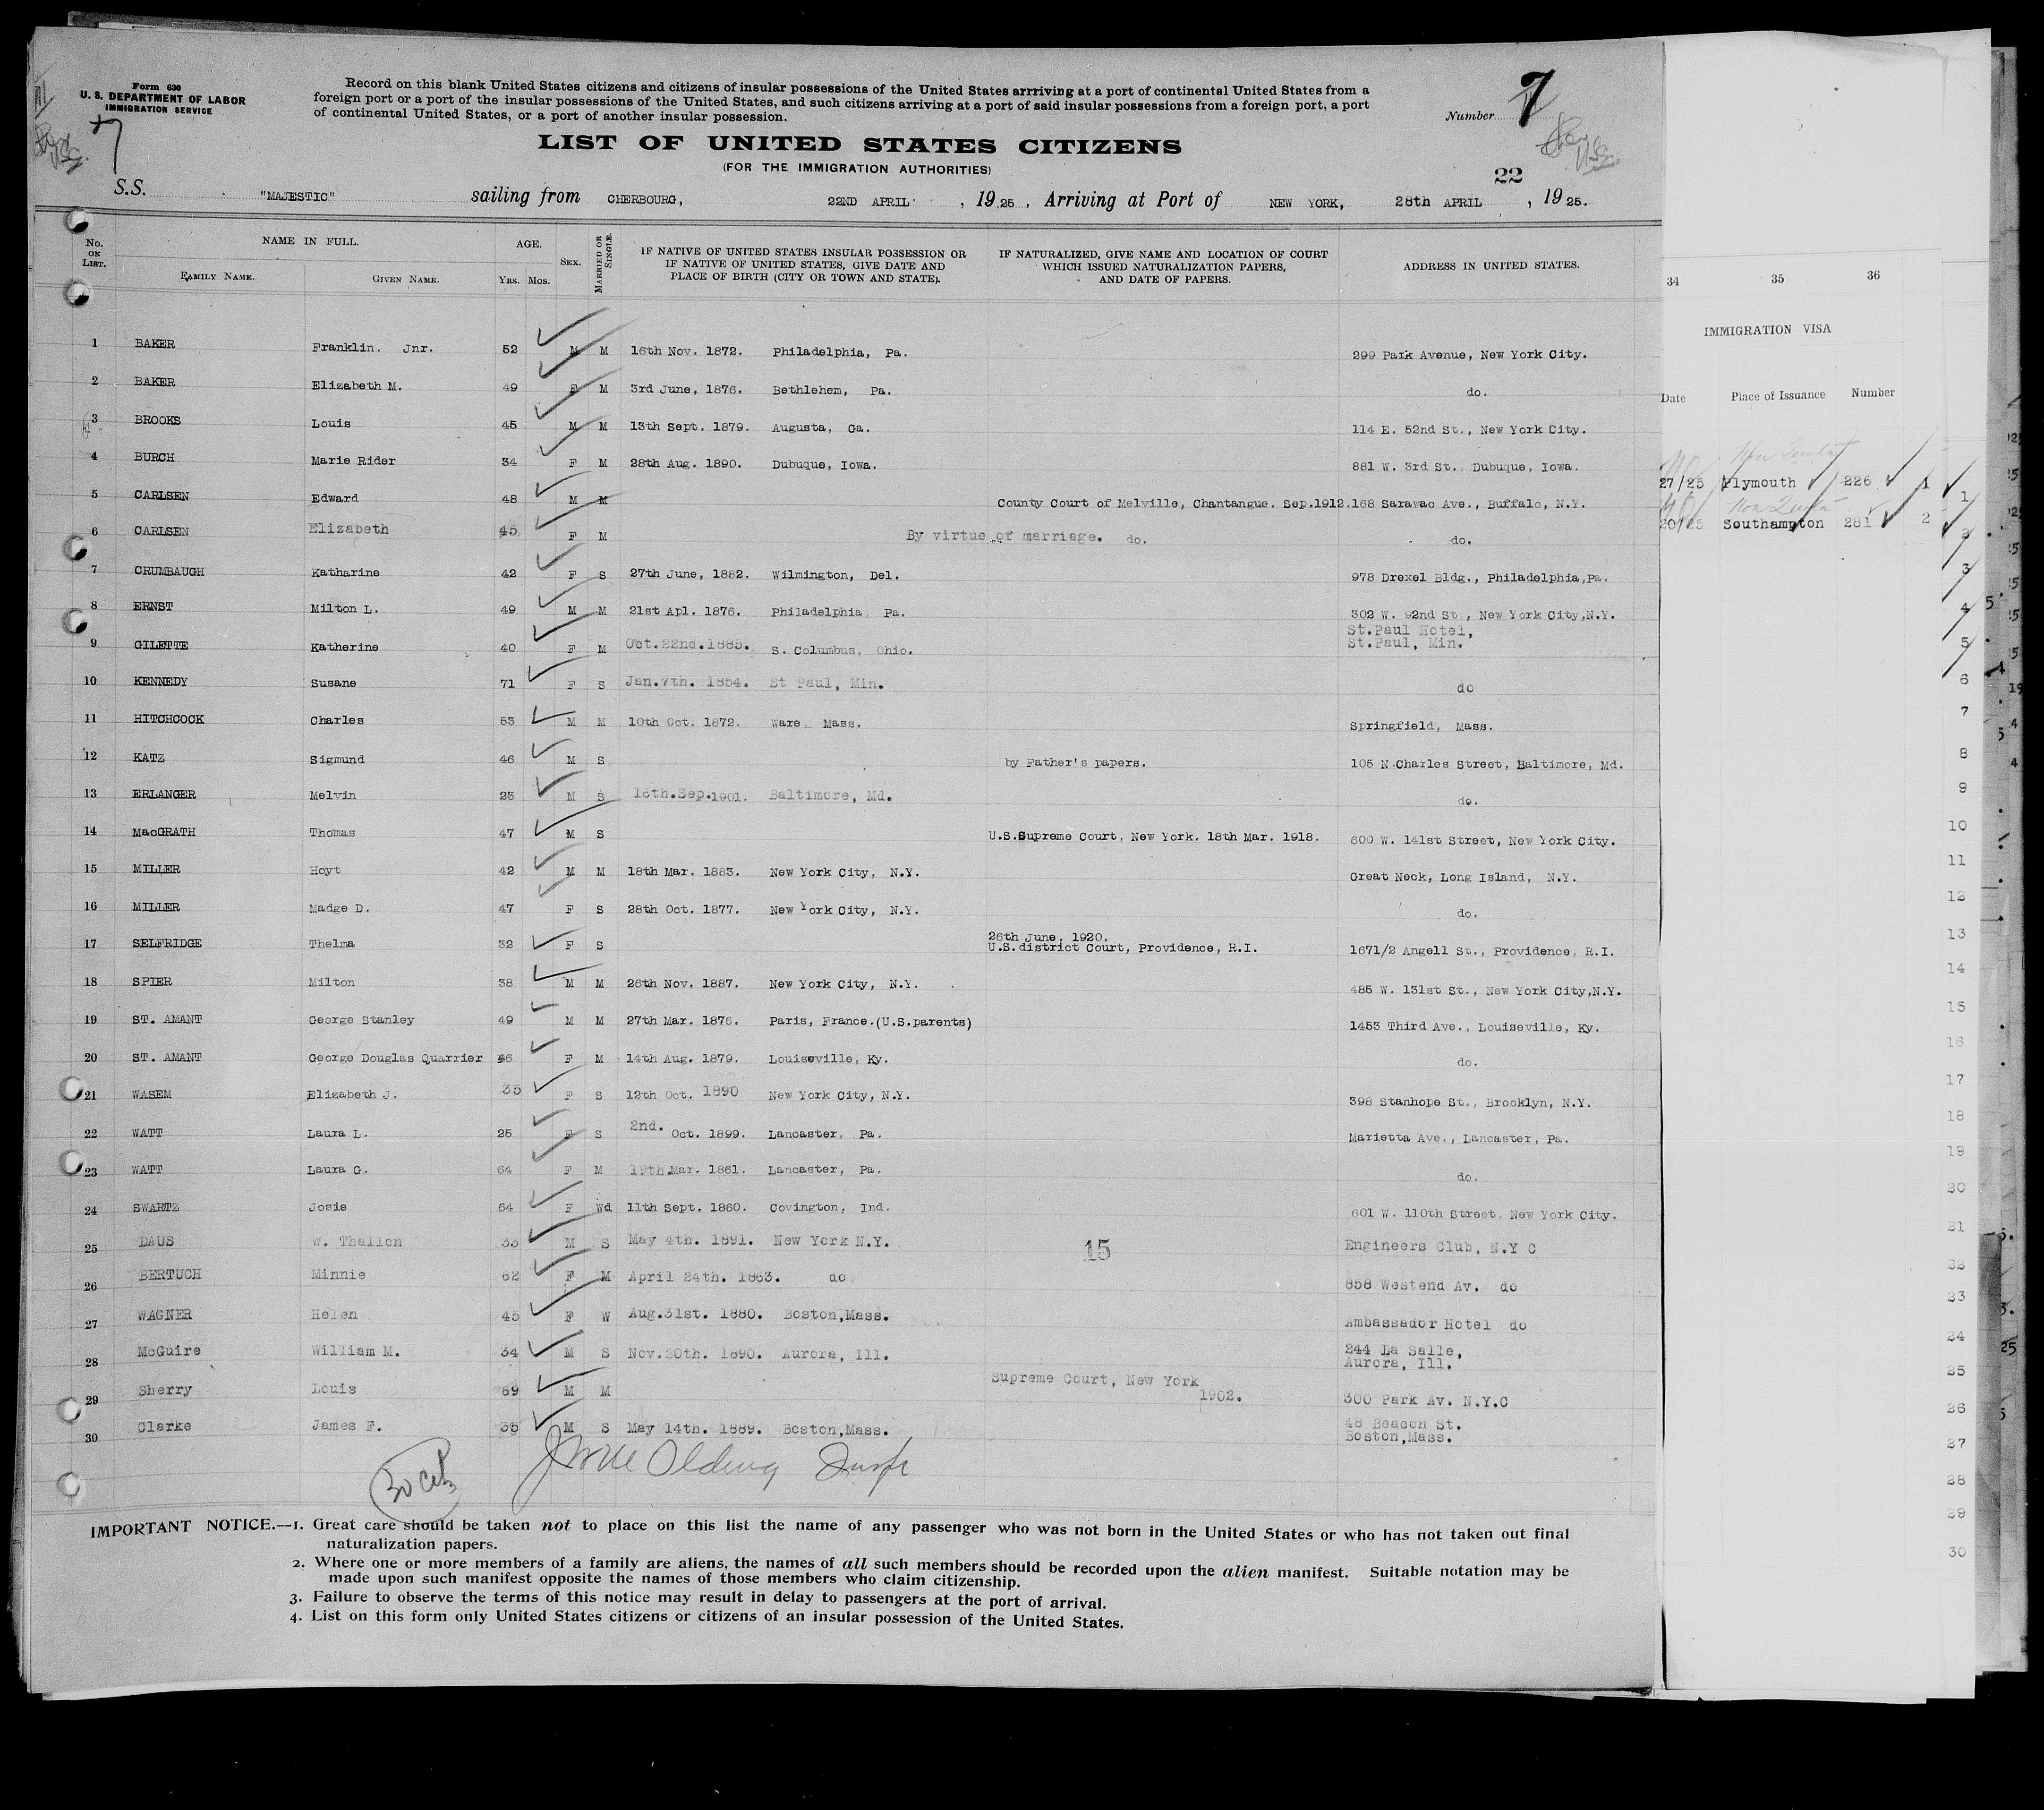 Form 630
U. S. DEPARTMENT OF LABOR
IMMIGRATION SERVICE
Record on this blank United States citizens and citizens of insular possessions of the United States arrriving at a port of continental United States from a
foreign port or a port of the insular possessions of the United States, and such citizens arriving at a port of said insular possessions from a foreign port, a port
of continental United States, or a port of another insular possession.
Number 7
LIST OF UNITED STATES CITIZENS
(FOR THE IMMIGRATION AUTHORITIES)
22
S.S. "MAJESTIC" sailing from CHERBOURG, 22ND APRIL, 1925, Arriving at Port of NEW YORK, 28th APRIL, 1925.
No. ON LIST. NAME IN FULL. FAMILY NAME. GIVEN NAME. AGE. YRS. MOS. SEX. MARRIED OR SINGLE. IF NATIVE OF UNITED STATES INSULAR POSSESSION OR IF NATIVE OF UNITED STATES, GIVE DATE AND PLACE OF BIRTH (CITY OR TOWN AND STATE). IF NATURALIZED, GIVE NAME AND LOCATION OF COURT WHICH ISSUED NATURALIZATION PAPERS, AND DATE OF PAPERS. ADDRESS IN UNITED STATES.
1 BAKER Franklin. Jnr. 52 M M 16th Nov. 1872. Philadelphia, Pa. 299 Park Avenue, New York City.
2 BAKER Elizabeth M. 49 F M 3rd June, 1876. Bethlehem, Pa. do.
3 BROOKS Louis 45 M M 13th Sept. 1879. Augusta, Ga. 114 E. 52nd St., New York City.
4 BURCH Marie Rider 34 F M 28th Aug. 1890. Dubuque, Iowa. 881 W. 3rd St. Dubuque, Iowa.
5 CARLSEN Edward 48 M M County Court of Melville, Chantangue. Sep.1912. 168 Sarawac Ave., Buffalo, N.Y.
6 CARLSEN Elizabeth 45 F M By virtue of marriage. do. do.
7 CRUMBAUGH Katharine 42 F S 27th June, 1882. Wilmington, Del. 978 Drexel Bldg., Philadelphia, Pa.
8 ERNST Milton L. 49 M M 21st Apl. 1876. Philadelphia, Pa. 302 W. 92nd St., New York City, N.Y.
9 GILETTE Katherine 40 F M Oct.22nd.1885. S. Columbus, Ohio. St.Paul Hotel,
St.Paul, Min.
10 KENNEDY Susane 71 F S Jan.7th. 1854. St Paul, Min. do
11 HITCHCOCK Charles 53 M M 10th Oct. 1872. Ware, Mass. Springfield, Mass.
12 KATZ Sigmund 46 M S by Father's papers. 105 N.Charles Street, Baltimore, Md.
13 ERLANGER Melvin 23 M S 16th.Sep.1901. Baltimore, Md. do.
14 MacGRATH Thomas 47 M S U.S.Supreme Court, New York. 18th Mar. 1918. 600 W. 141st Street, New York City.
15 MILLER Hoyt 42 M M 18th Mar. 1883. New York City, N.Y. Great Neck, Long Island, N.Y.
16 MILLER Madge D. 47 F S 28th Oct. 1877. New York City, N.Y. do.
17 SELFRIDGE Thelma 32 F S 26th June, 1920.
U.S.district Court, Providence, R.I. 1671/2 Angell St., Providence, R.I.
18 SPIER Milton 38 M M 26th Nov. 1887. New York City, N.Y. 485 W. 131st St., New York City,N.Y.
19 ST. AMANT George Stanley 49 M M 27th Mar. 1876. Paris, France.(U.S.parents) 1453 Third Ave., Louiseville, Ky.
20 ST. AMANT George Douglas Quarrier 46 F M 14th Aug. 1879. Louiseville, Ky. do.
21 WASEM Elizabeth J. 35 F S 12th Oct. 1890 New York City, N.Y. 398 Stanhope St., Brooklyn, N.Y.
22 WATT Laura L. 25 F S 2nd. Oct. 1899. Lancaster, Pa. Marietta Ave., Lancaster, Pa.
23 WATT Laura G. 64 F M 19th.Mar. 1861. Lancaster, Pa. do.
24 SWARTZ Josie 64 F Wd 11th Sept. 1860. Covington, Ind. 601 W. 110th Street, New York City.
25 DAUS W. Thallon 33 M S May 4th. 1891. New York N.Y. 15 Engineers Club, N.Y C
26 BERTUCH Minnie 62 F M April 24th. 1863. do 858 Westend Av. do
27 WAGNER Helen 45 F W Aug.31st. 1880. Boston,Mass. Ambassador Hotel do
28 McGuire William M. 34 M S Nov.20th. 1890. Aurora, Ill. 244 La Salle,
Aurora, Ill.
29 Sherry Louis 69 M M Supreme Court, New York
1902. 300 Park Av. N.Y.C
30 Clarke James F. 35 M S May 14th. 1889. Boston,Mass. 48 Beacon St.
Boston,Mass.
IMPORTANT NOTICE.—1. Great care should be taken not to place on this list the name of any passenger who was not born in the United States or who has not taken out final
naturalization papers.
2. Where one or more members of a family are aliens, the names of all such members should be recorded upon the alien manifest. Suitable notation may be
made upon such manifest opposite the names of those members who claim citizenship.
3. Failure to observe the terms of this notice may result in delay to passengers at the port of arrival.
4. List on this form only United States citizens or citizens of an insular possession of the United States.
34 35 36
IMMIGRATION VISA
Date Place of Issuance Number
27/25 Plymouth 226 1
20/25 Southampton 281 2
1
2
3
4
5
6
7
8
9
10
11
12
13
14
15
16
17
18
19
20
21
22
23
24
25
26
27
28
29
30